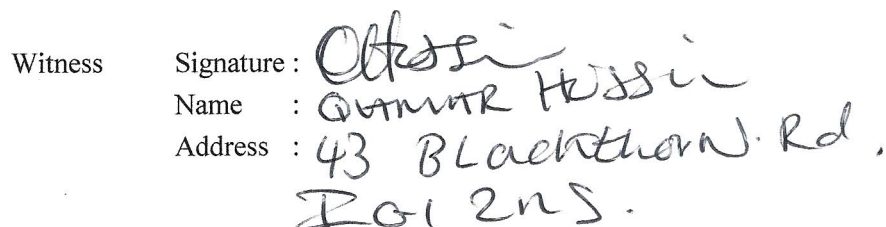 Witness Signature :
Name : QUAMAR HUSSIN
Address : 43 BLackthorN. Rd,
IG1 2nS.